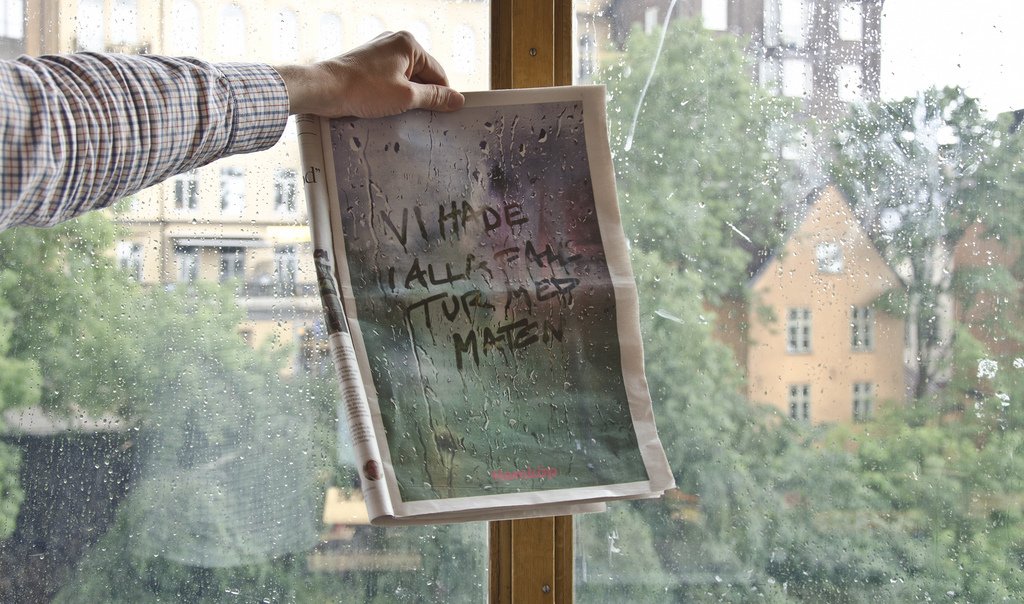 VI HADE
I ALLA FALL
TUR MED
MATEN